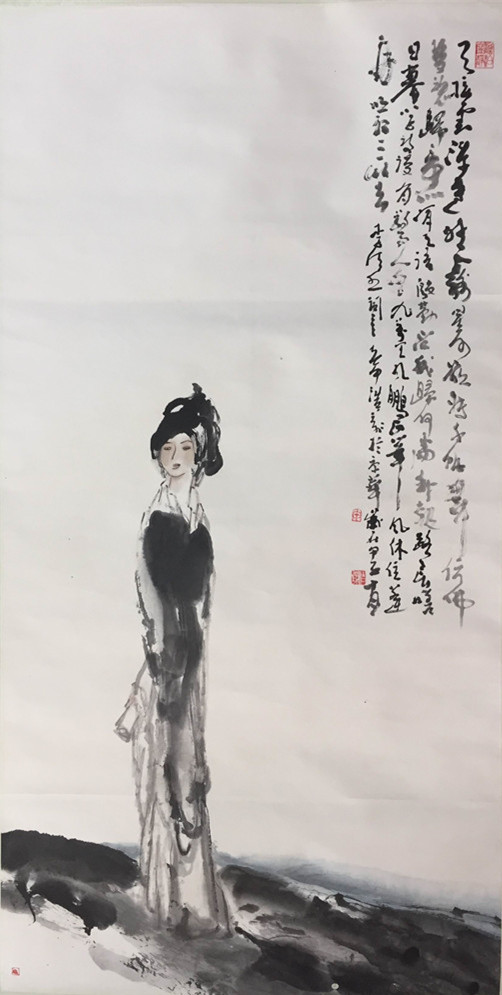 天接雲濤連曉霧星河欲轉千帆舞彷彿
夢魂歸帝所聞天語殷勤問我歸何處我報路長嗟
日暮學詩漫有驚人句九萬里風鵬正舉風休住蓬
舟吹取三山去 李清照詞意